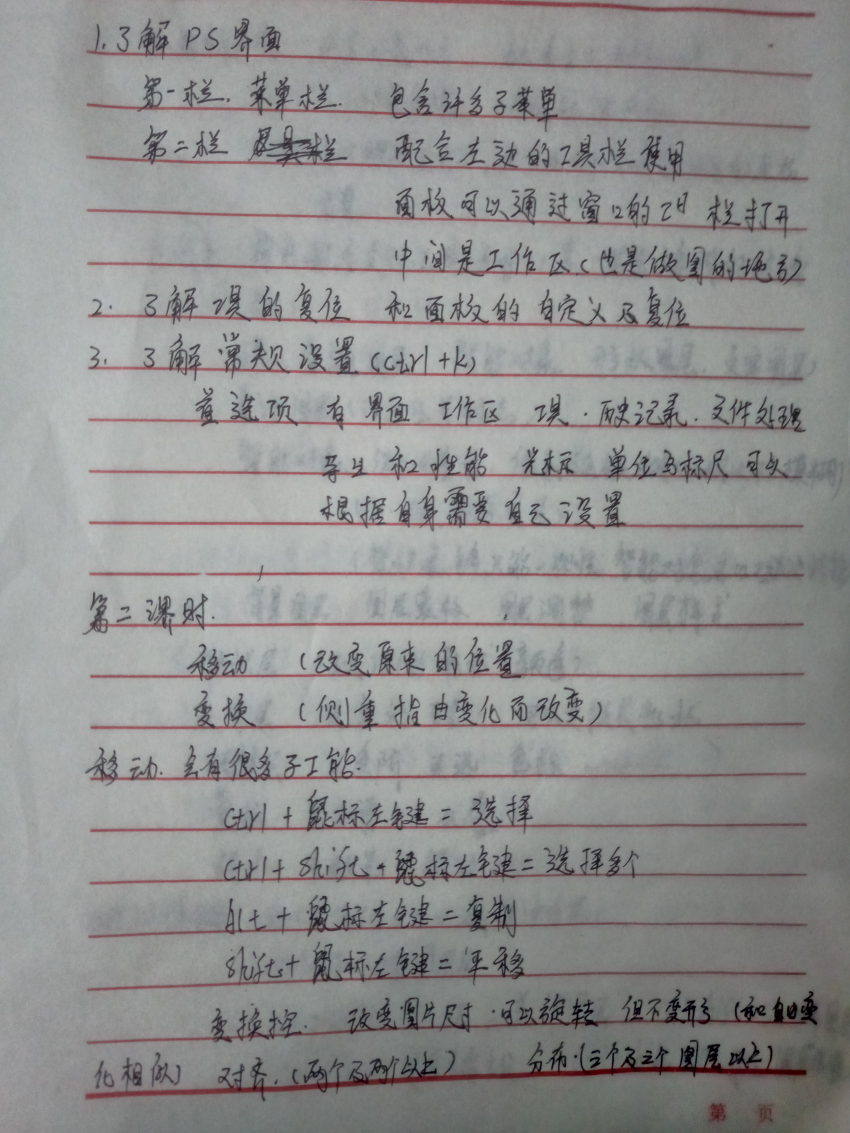 1.了解PS界面
第一栏.菜单栏. 包含许多子菜单
第二栏 栏 配合左边的工具栏使用
面板可以通过窗口的 栏打开
中间是工作区(也是做图的地方)
2.了解工具的复位 和面板的自定义及复位
3.了解常规设置(ctrl+k)
首选项 有界面 工作区 工具.历史记录.文件处理
导出 和性能 光标 单位与标尺 可以
根据自身需要自己设置
第二课时.
移动 (改变原来的位置
变换 (侧重指由变化而改变)
移动.会有很多子工能.
Ctrl+鼠标左键=选择
Ctrl+Shift+鼠标左键=选择多个
Alt+鼠标左键=复制
Shift+鼠标左键=平移
变换控. 改变图片尺寸.可以旋转 但不变形(和自由变
化相似) 对齐.(两个及两个以上) 分布.(三个及三个图层以上)
第 页